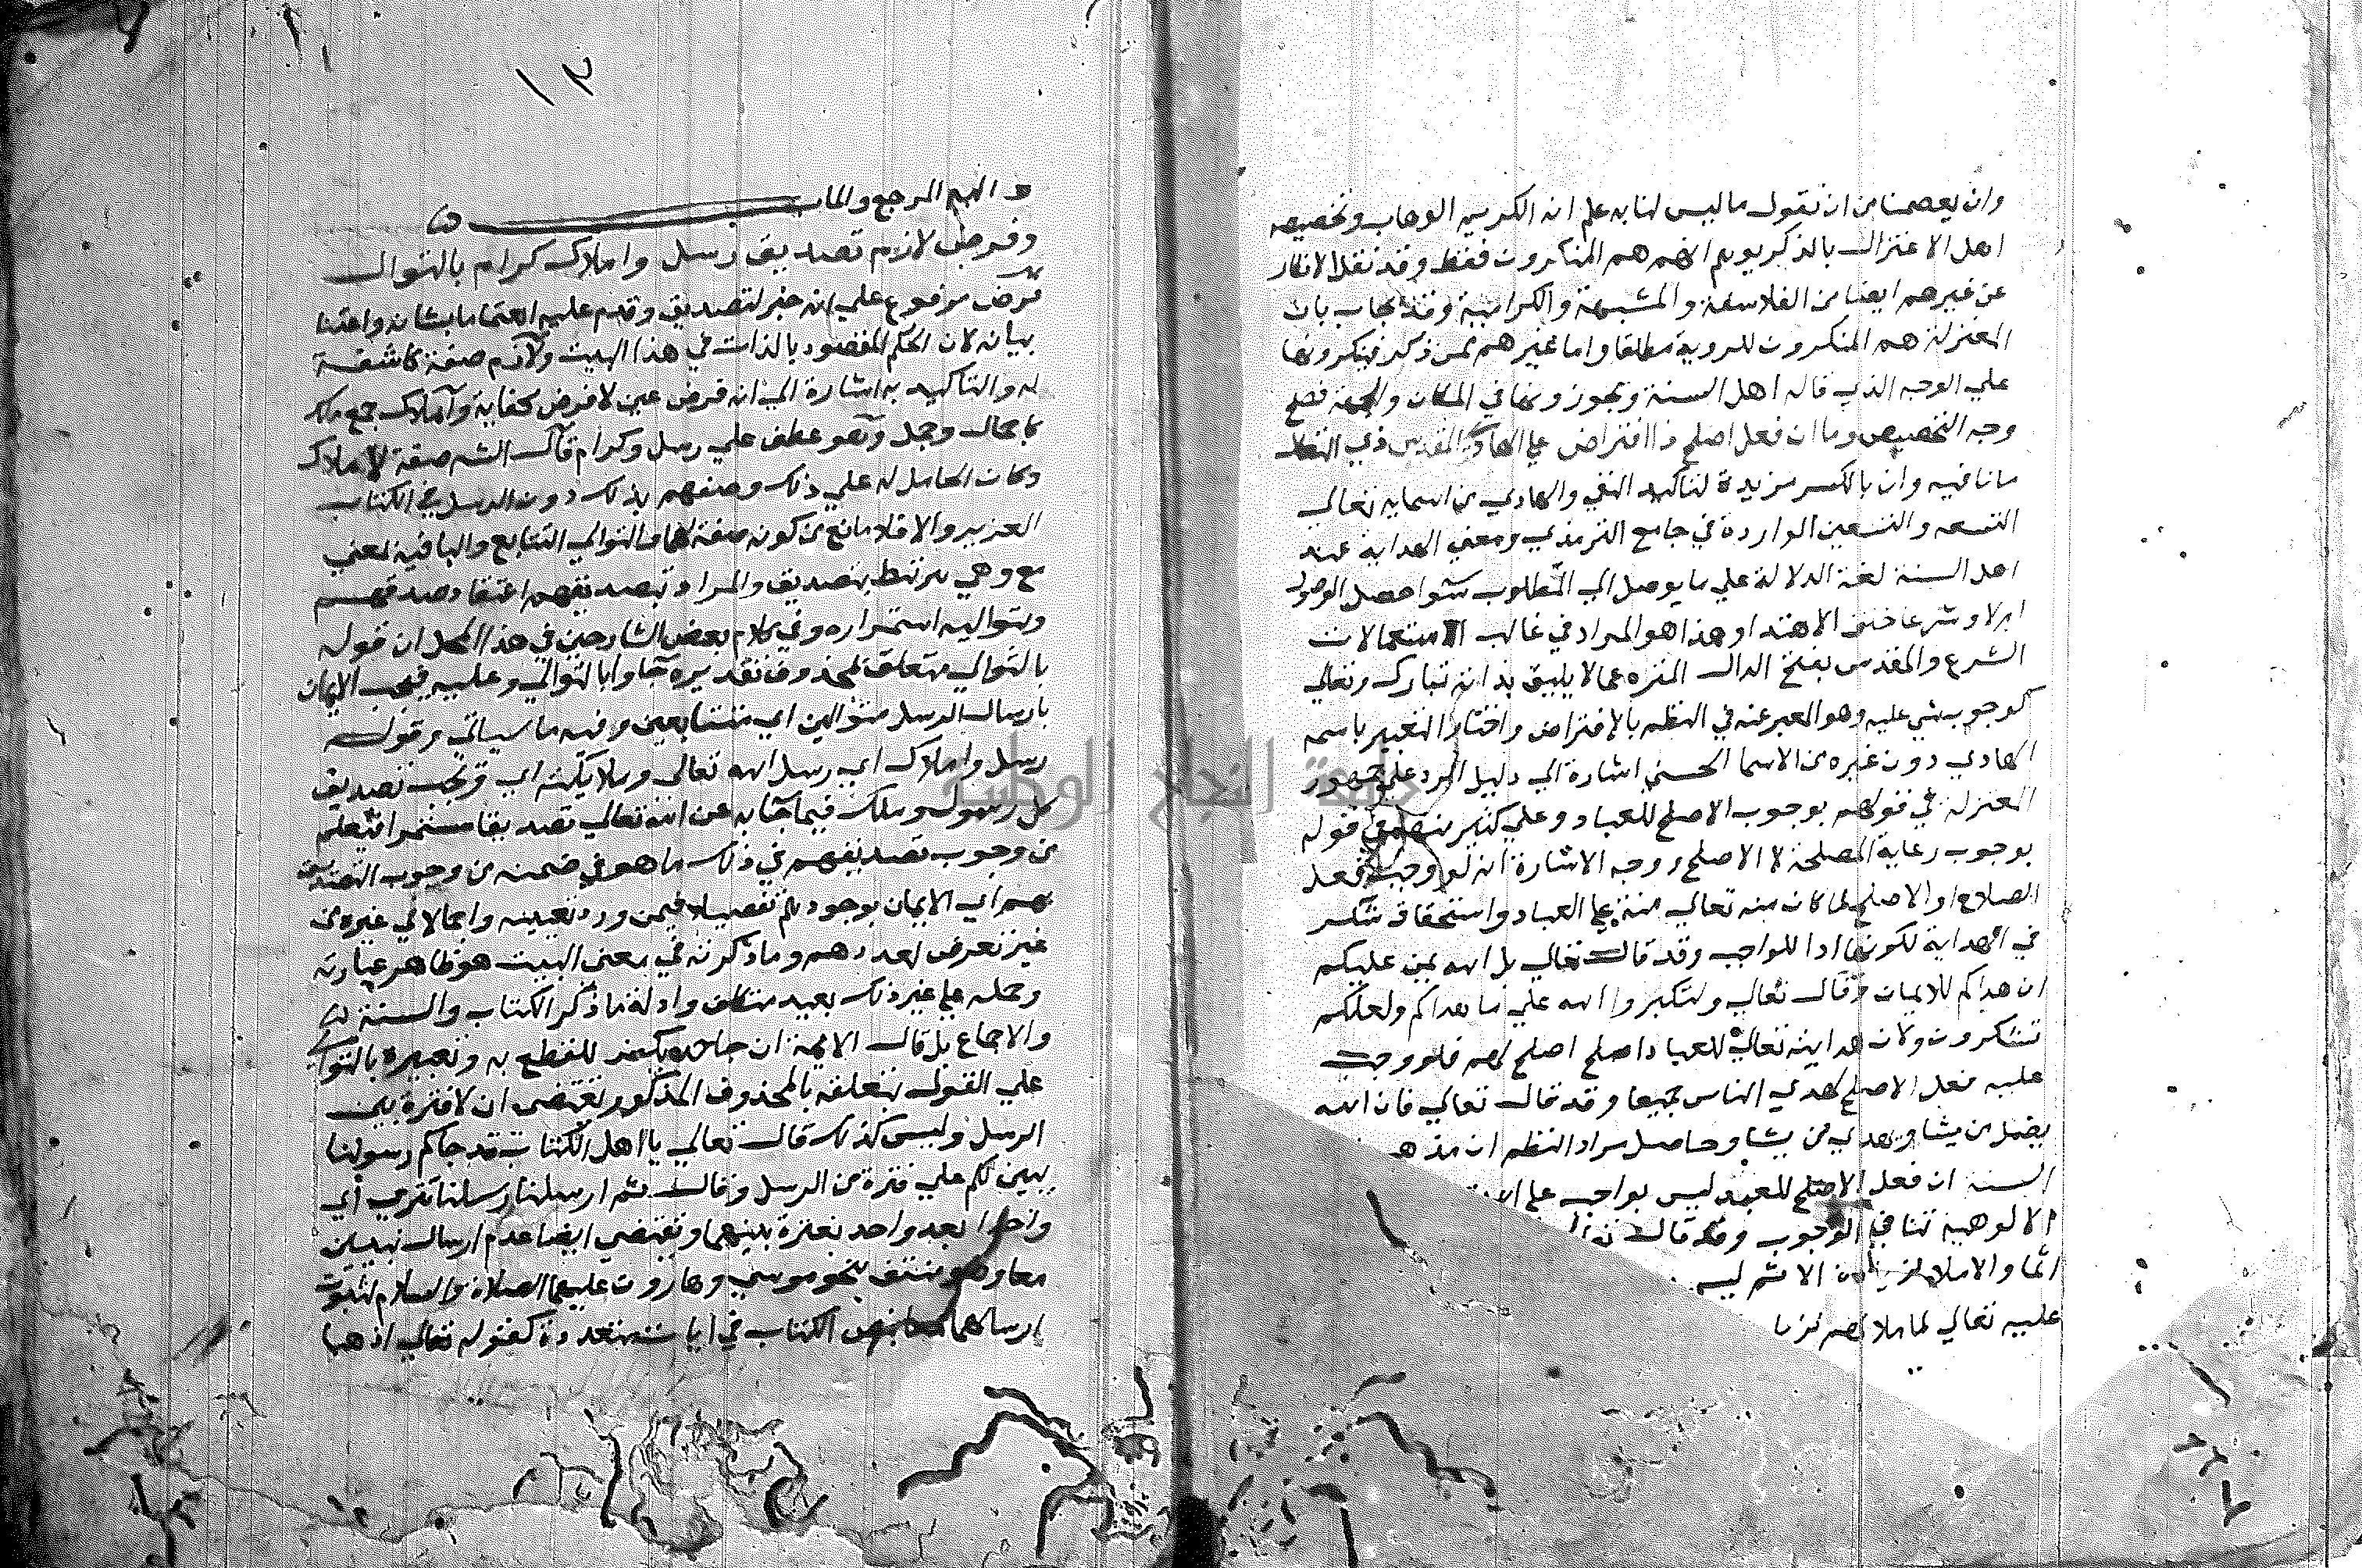 وان يعصمنا من ان نقول ما ليس لنا به علم انه الكريم الوهاب وتخصيصه
اهل الاعتزال بالذكر يوهم انهم هم المنكرون فقط وقد نقل الانكار
عن غيرهم ايضا من الفلاسفة والمشبهة والكرامية وقد يجاب بان
المعتزلة هم المنكرون للروية مطلقا واما غيرهم ممن ذكر فينكرونها
علي الوجه الذي قاله اهل السنة ويجوزونها في المكان والجهة فصلح
وجه التخصيص وما ان فعل اصلح ذا افتراض علي الهادي المقدس ذي التعال
ما نافيه وان بالكسر مزيدة لتاكيد النفي والهادي من اسمايه تعالي
التسعه والتسعين الواردة في جامع الترمذي ومعني الهداية عند
اهل السنة لغة الدلالة علي ما يوصل الي المطلوب سوا حصل الوصول
ام لا وشرعا خلق الاهتدا وهذا هو المراد في غالب الاستعمالات
الشرع والمقدس بفتح الدال المنزه عما لا يليق بذاته تبارك وتعالي
كوجوب شي عليه وهو المعبر عنه في النظم بالافتراض واختار التعبير باسمه
الهادي دون غيره من الاسما الحسني اشارة الي دليل الرد علي جمهور
المعتزلة في قولهم بوجوب الاصلح للعباد وعلي كثير منهم في قوله
بوجوب رعاية المصلحة لا الاصلح ووجه الاشارة انه لو وجب فعل
الصلاح او الاصلح لما كان منه تعالي منة علي العباد واستحقاق شكر
في الهداية لكونها ادا للواجب وقد قال تعالي بل الله يمن عليكم
ان هداكم للايمان وقال تعالي ولتكبروا الله علي ما هداكم ولعلكم
تشكرون ولان هدايته تعالي للعباد اصلح اصلح لهم فلو وجب
عليه فعل الاصلح لهدي الناس جميعا وقد قال تعالي فان الله
يضل من يشا ويهدي من يشا وحاصل مراد النظم ان مذهب
السنه ان فعل الاصلح للعبد ليس بواجب علي
الالوهية تنافي الوجوب وقد قال
اثما والاملا لزيادة الاثم ليس
عليه تعالي لما املا لهم
١٣
و اليه المرجع والماب
وفرض لازم تصديق رسل واملاك كرام بالتوال
فرض مرفوع علي انه خبر لتصديق وقدم عليه اهتماما بشانه واعتنا
ببيانه لان الحكم المقصود بالذات في هذا البيت ولازم صفة كاشفة
له والتاكيد به اشارة الي انه فرض عين لا فرض كفاية واملاك جمع ملك
كاجمال وجمل وهو عطف علي رسل وكرام قال الشه صفة لاملاك
وكان الحامل له علي ذلك وصفهم بذلك دون الرسل في الكتاب
العزيز والا فلا مانع من كونه صفة لهما والتوالي التتابع والبا فيه بمعني
مع وهي مرتبط بتصديق والمراد بتصديقهم اعتقاد صدقهم
وبتواليه استمراره وفي كلام بعض الشارحين في هذا المحل ان قوله
بالتوالي متعلق بمحذوف تقديره جاوا بالتوالي وعليه فيجب الايمان
بارسال الرسل متوالين اي متتابعين وفيه ما سياتي وقوله
رسل واملاك اي رسل الله تعالي وملايكته اي ويجب تصديق
كل رسول وملك فيما جا به عن الله تعالي تصديقا مستمرا فيعلم
من وجوب تصديقهم في ذلك ما هو في ضمنه من وجوب التصديق
بهم اي الايمان بوجودهم تفصيلا فيمن ورد تعيينه واجمالا في غيره من
غير تعرض لعددهم وما ذكرته في معني البيت هو ظاهر عبارته
وحمله علي غير ذلك بعيد متكلف وادلة ما ذكر الكتاب والسنة
والاجماع بل قال الايمة ان جاحده يكفر للقطع به وتعبيره بالتوالي
علي القول بتعلقه بالمحذوف المذكور تقتضي ان لا فترة بين
الرسل وليس كذلك قال تعالي يا اهل الكتاب قد جاكم رسولنا
يبين لكم علي فترة من الرسل وقال ثم ارسلنا رسلنا تتري اي
واحدا بعد واحد بفترة بينهما وتقتضي ايضا عدم ارسال نبيين
معا وهو منتف بنحو موسي وهارون عليهما الصلاة والسلام لثبوت
ارسالهما بنص الكتاب في ايات متعددة كقوله تعالي اذهبا